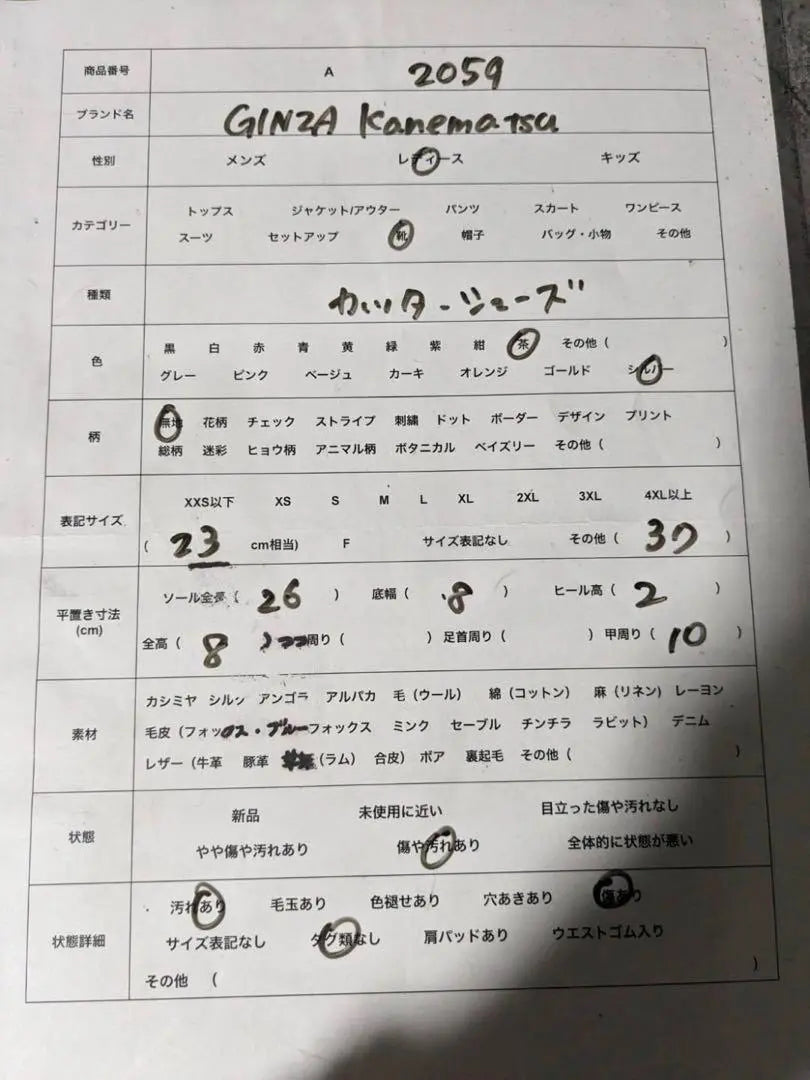 商品番号 A 2059
ブランド名 GINZA Kanematsu
性別 メンズ レディース キッズ
カテゴリー
トップス ジャケット/アウター パンツ スカート ワンピース
スーツ セットアップ 靴 帽子 バッグ・小物 その他
種類 カッターシューズ
色
黒 白 赤 青 黄 緑 紫 紺 茶 その他 ( )
グレー ピンク ベージュ カーキ オレンジ ゴールド シルバー
柄
無地 花柄 チェック ストライプ 刺繍 ドット ボーダー デザイン プリント
総柄 迷彩 ヒョウ柄 アニマル柄 ボタニカル ペイズリー その他 ( )
表記サイズ
XXS以下 XS S M L XL 2XL 3XL 4XL以上
( 23 cm相当) F サイズ表記なし その他 ( )
平置き寸法
(cm)
ソール全長 ( 26 ) 底幅 ( 8 ) ヒール高 ( 2 )
全高 ( 8 ) 周り ( ) 足首周り ( ) 甲周り ( 10 )
素材
カシミヤ シルク アンゴラ アルパカ 毛 (ウール) 綿 (コットン) 麻 (リネン) レーヨン
毛皮 (フォックス・ブルーフォックス ミンク セーブル チンチラ ラビット) デニム
レザー (牛革 豚革 (ラム) 合皮) ボア 裏起毛 その他 ( )
状態
新品 未使用に近い 目立った傷や汚れなし
やや傷や汚れあり 傷や汚れあり 全体的に状態が悪い
状態詳細
汚れあり 毛玉あり 色褪せあり 穴あきあり 傷あり
サイズ表記なし タグ類なし 肩パッドあり ウエストゴム入り
その他 ( )